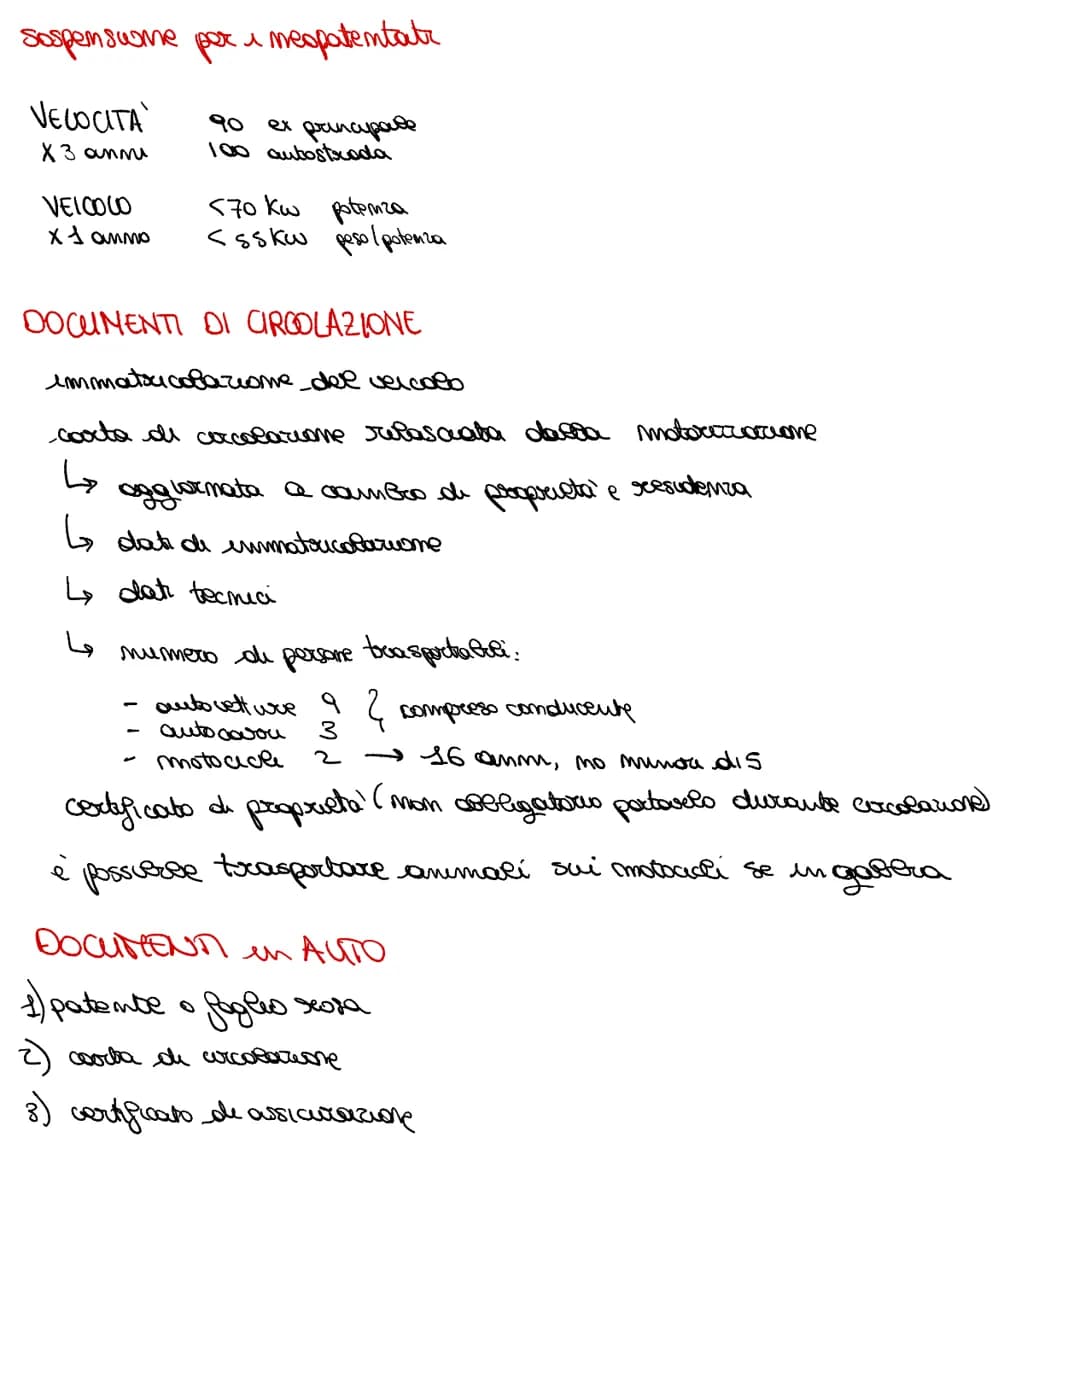 sospensione per i neopatentati
VELOCITA' 90 ex principale
X 3 anni 100 autostrada
VEICOLO <70 Kw potenza
X 1 anno <55Kw peso/potenza
DOCUMENTI DI CIRCOLAZIONE
immatricolazione del veicolo
carta di circolazione rilasciata dalla motorizzazione
↳ aggiornata a cambio di proprietà e residenza
↳ dati di immatricolazione
↳ dati tecnici
↳ numero di persone trasportabili:
- autovetture 9 } compreso conducente
- autocarri 3
- motocicli 2 → 16 anni, no minori di 5
certificato di proprietà (non obbligatorio portarselo durante circolazione)
è possibile trasportare animali sui motocicli se in gabbia
DOCUMENTI in AUTO
1) patente o foglio rosa
2) carta di circolazione
3) certificato di assicurazione